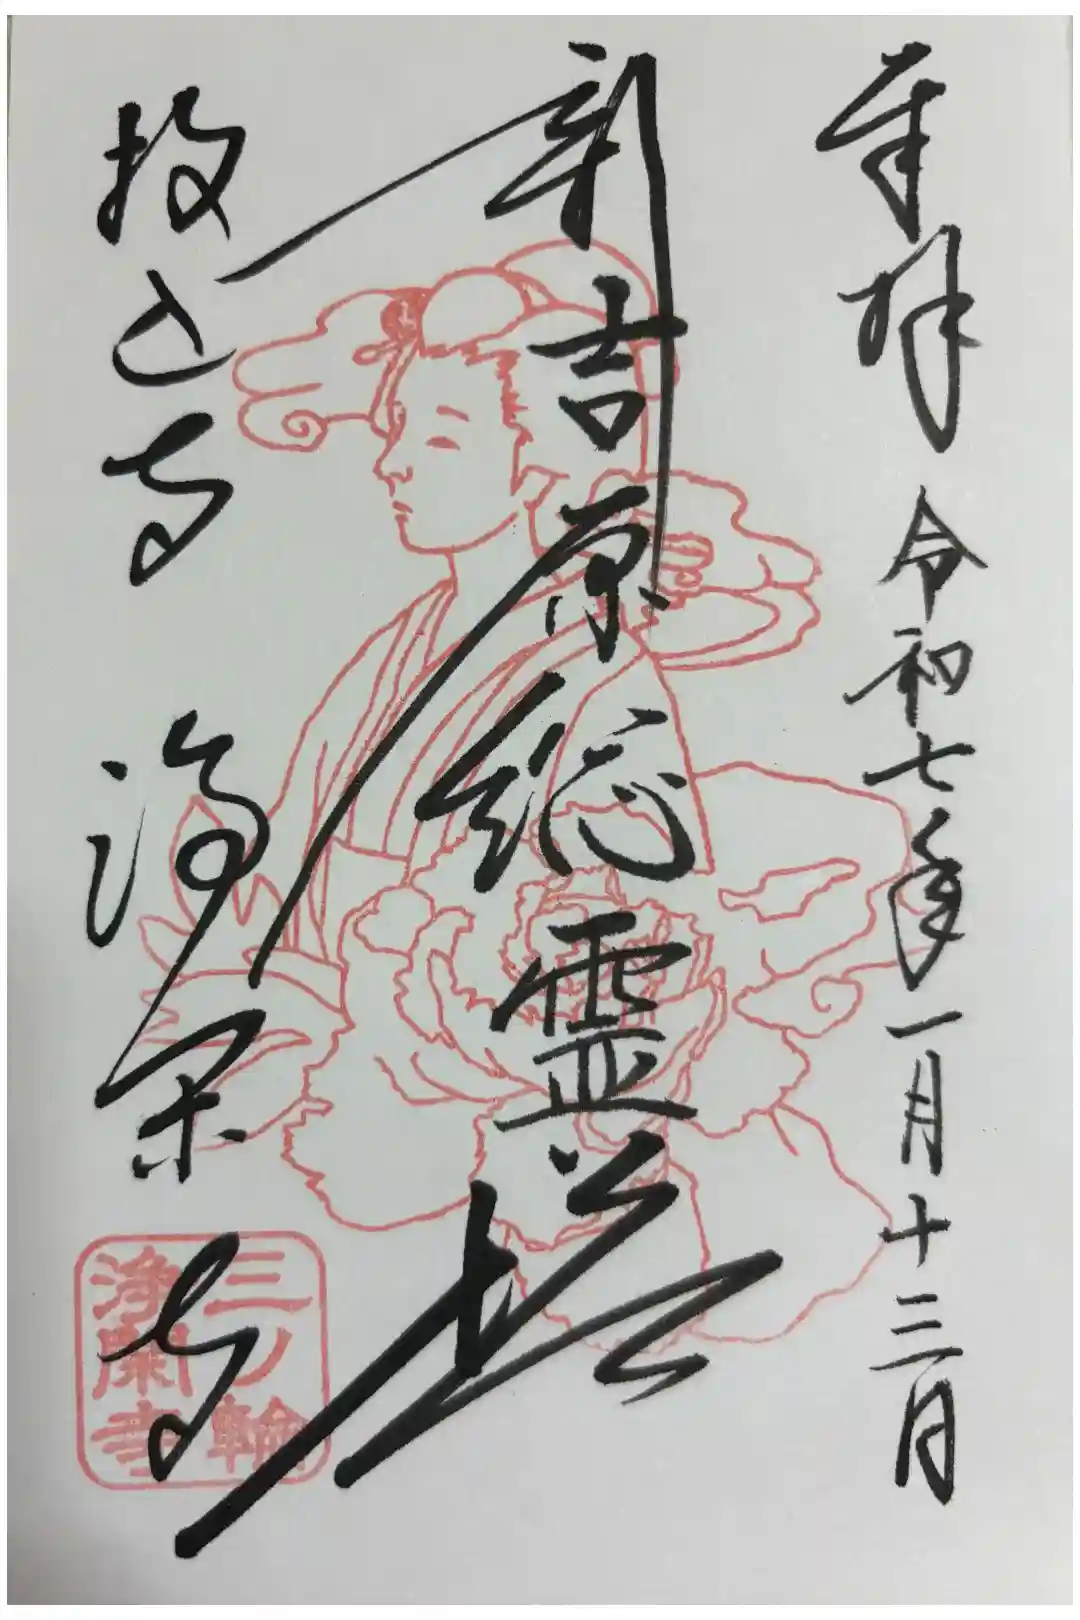 奉拝 令和七年一月十三日
新吉原総霊塔
投込寺 浄閑寺
三ノ輪
浄閑寺